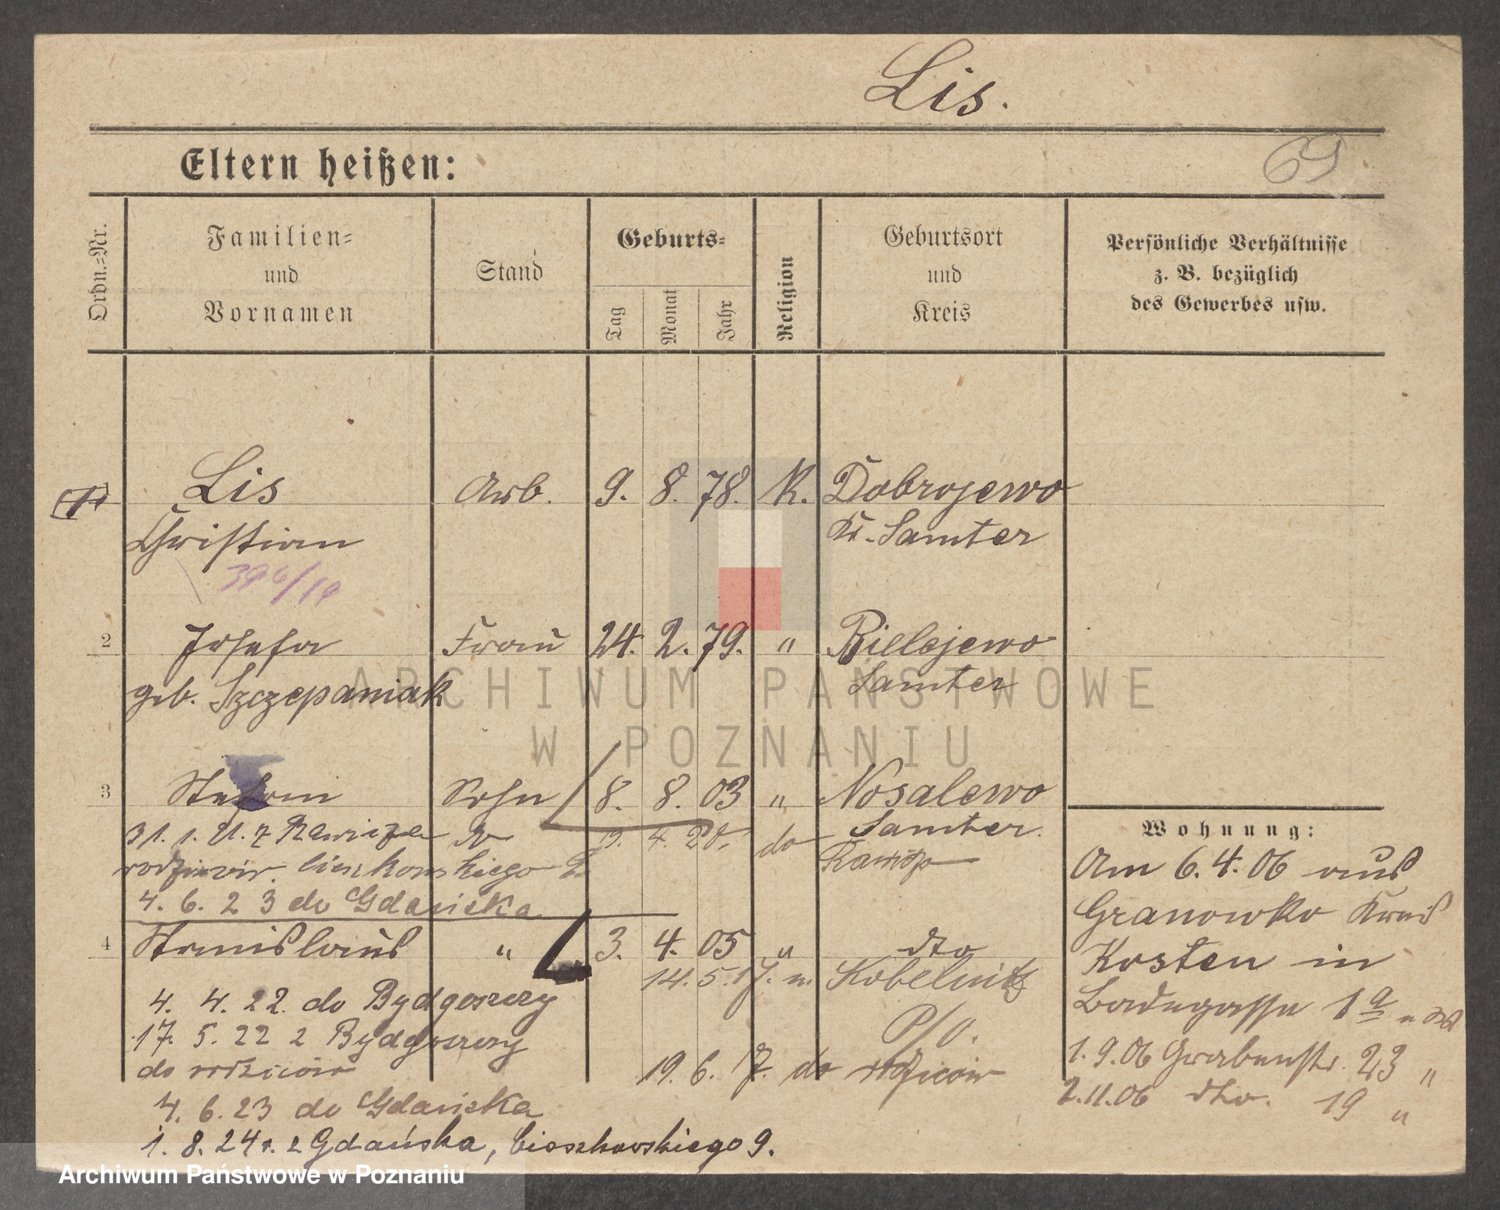 Lis.
Eltern heißen:
69
Ordn.-Nr.
Familien-
und
Vornamen
Stand
Geburts-
Tag
Monat
Jahr
Religion
Geburtsort
und
Kreis
Persönliche Verhältnisse
z. B. bezüglich
des Gewerbes usw.
1 Lis Arb. 9. 8. 78. K. Dobrojewo
Christian Kr. Samter
2 Josefa Frau 24. 2. 79. " Bielejewo
geb. Szczepaniak Samter
3 Stefan Sohn 8. 8. 03 " Nosalewo
Samter.
31. 1. 21. z Rawicza do 19. 4. 20. do Rawicz
rodziców. Cieszkowskiego 9
4. 6. 23 do Gdańska
4 Stanislaus " 3. 4. 05 " dto
14. 5. 17. n. Kobelnitz
P/O.
4. 4. 22. do Bydgoszczy
17. 5. 22 z Bydgoszczy
do rodziców
19. 6. 17. do rodziców
4. 6. 23 do Gdańska
1. 8. 24 r. z Gdańska, Cieszkowskiego 9.
Wohnung:
Am 6. 4. 06 aus
Granowko Kreis
Kosten in
Badegasse 1 a
1. 9. 06 Grabenstr. 23 "
2. 11. 06 dto. 19 "
ARCHIWUM PAŃSTWOWE
W POZNANIU
Archiwum Państwowe w Poznaniu